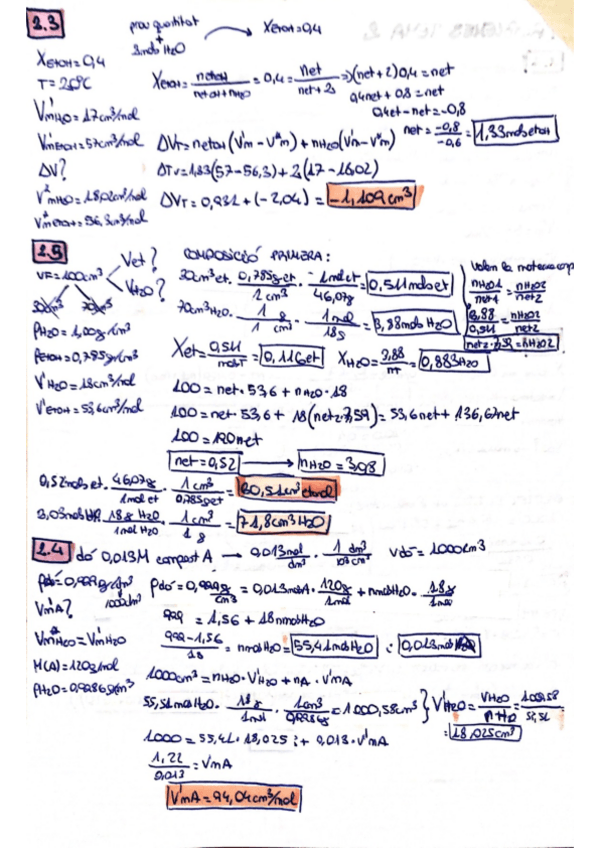 2.3
prou quantitat + 2mols H₂O → X_EtOH = 0,4
X_EtOH = 0,4
T = 25ºC
V'mH₂O = 17cm³/mol
V'mEtOH = 57cm³/mol
ΔV?
V*mH₂O = 18,02cm³/mol
V*mEtOH = 56,3cm³/mol
X_EtOH = netOH/(netOH+nH₂O) = 0,4 = net/(net+2) ⇒ (net+2)0,4 = net
0,4net + 0,8 = net
0,4et - net = -0,8
net = -0,8/-0,6 = 1,33mols etOH
ΔV_T = netOH (V'm - V*m) + nH₂O (V'm - V*m)
ΔT_V = 1,33(57-56,3) + 2(17-18,02)
ΔV_T = 0,931 + (-2,04) = -1,109cm³
2.5
VF = 100cm³ Vet? V H₂O?
30cm³ 70cm³
ρH₂O = 1,00g/cm³
ρetOH = 0,785g/cm³
V'H₂O = 18cm³/mol
V'EtOH = 53,6cm³/mol
COMPOSICIÓ PRIMERA:
30cm³et. 0,785g et/1cm³ · 1mol et/46,07g = 0,511mols et
70cm³H₂O · 1g/1cm³ · 1mol/18g = 3,88mol H₂O
Xet = 0,511/molsT = 0,116et X_H₂O = 3,88/nT = 0,883H₂O
Volem la mateixa comp
nH₂O1/net1 = nH₂O2/net2
3,88/0,511 = nH₂O2/net2
net2 · 7,59 = nH₂O2
100 = net · 53,6 + nH₂O · 18
100 = net · 53,6 + 18(net2 · 7,59) = 53,6net + 136,62net
100 = 190net
net = 0,52 → nH₂O = 3,98
0,52mols et. 46,07g/1mol et · 1cm³/0,785g et = 30,51cm³ etanol
18g H₂O/1mol H₂O · 1cm³/1g = 71,8cm³H₂O
2.4 dó 0,013M compost A → 0,013mol/dm³ · 1dm³/10³cm³ Vdó = 1000cm³
ρdó = 0,999g/cm³
V'mA?
V*mH₂O = V'mH₂O
M(A) = 120g/mol
ρH₂O = 0,9986g/cm³
ρdó = 0,999g/cm³ = 0,013molA · 120g/1mol + nmolsH₂O · 18g/1mol
1000cm³
999 = 1,56 + 18nmolsH₂O
(999-1,56)/18 = nmolsH₂O = 55,41molsH₂O : 0,013mols
1000cm³ = nH₂O · V'H₂O + nA · V'mA
55,51molsH₂O · 18g/1mol · 1cm³/0,9986g = 1000,58cm³ } V'H₂O = VH₂O/nH₂O = 18,025cm³
1000 = 55,41 · 18,025 + 0,013 · V'mA
1,22/0,013 = V'mA
V'mA = 94,04cm³/mol